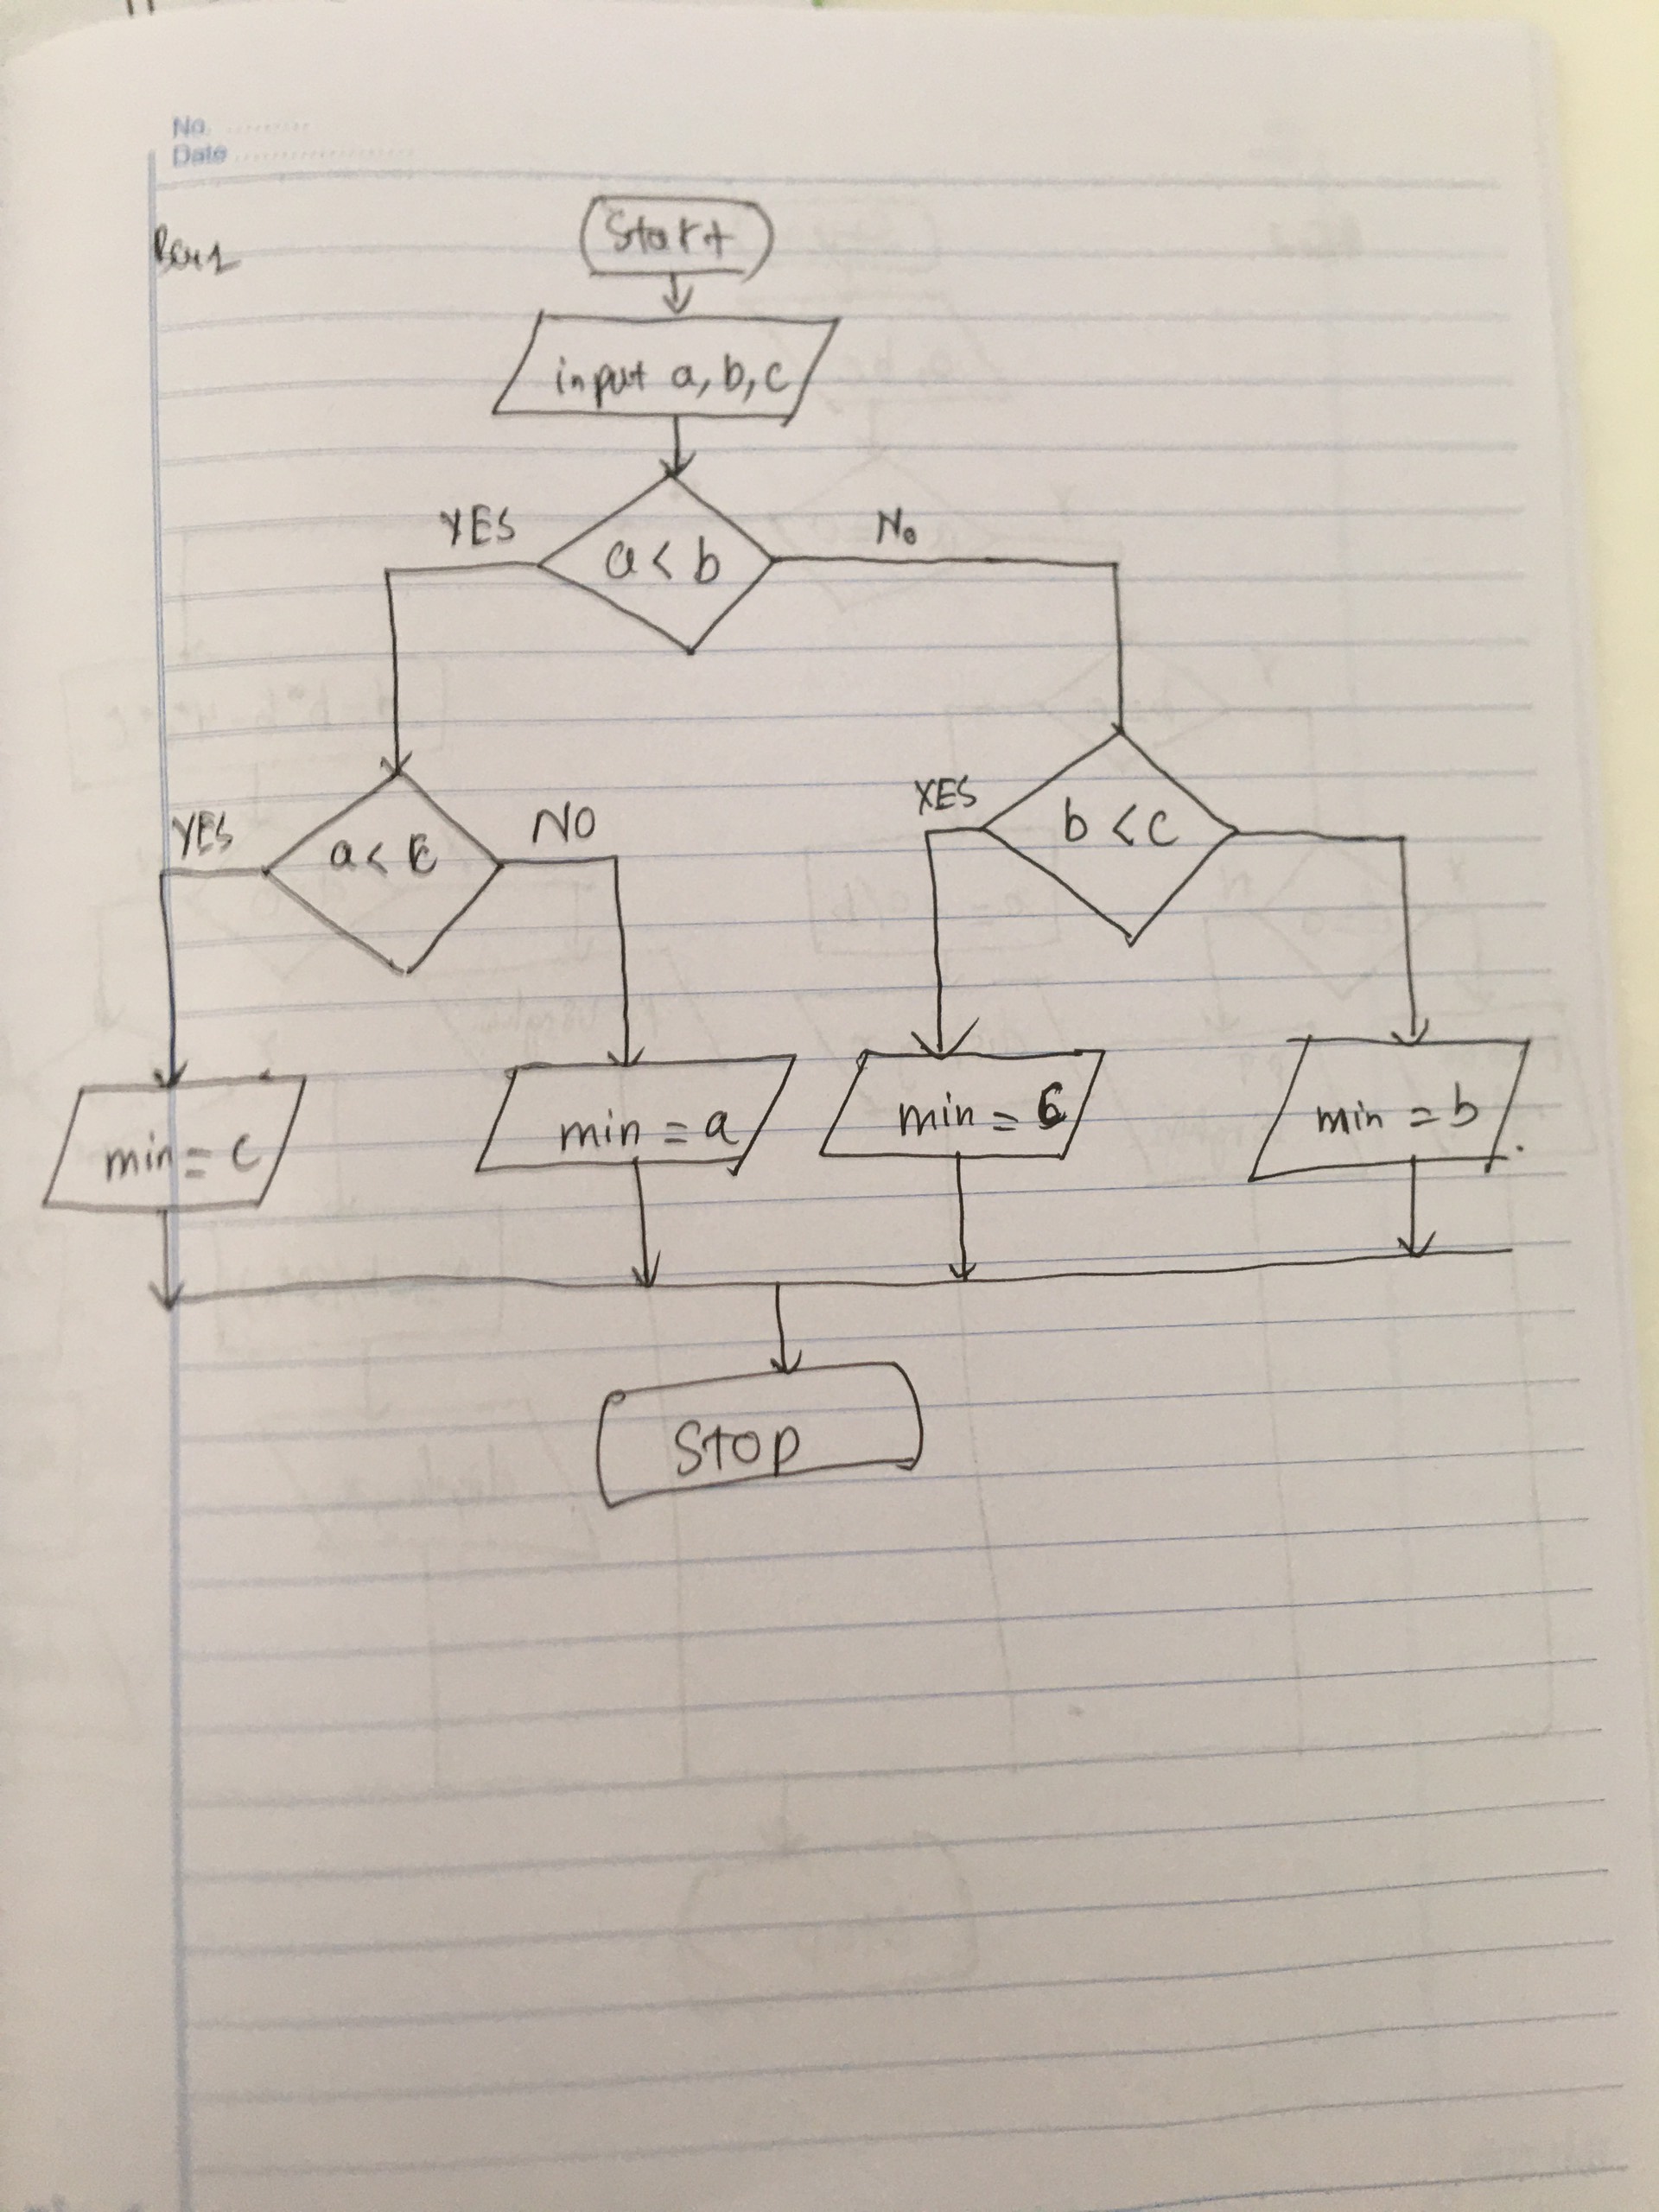 No.
Date
Start
input a, b, c
YES
No
a < b
YES
a < c
NO
YES
b < c
min = c
min = a
min =
min = b
STOP